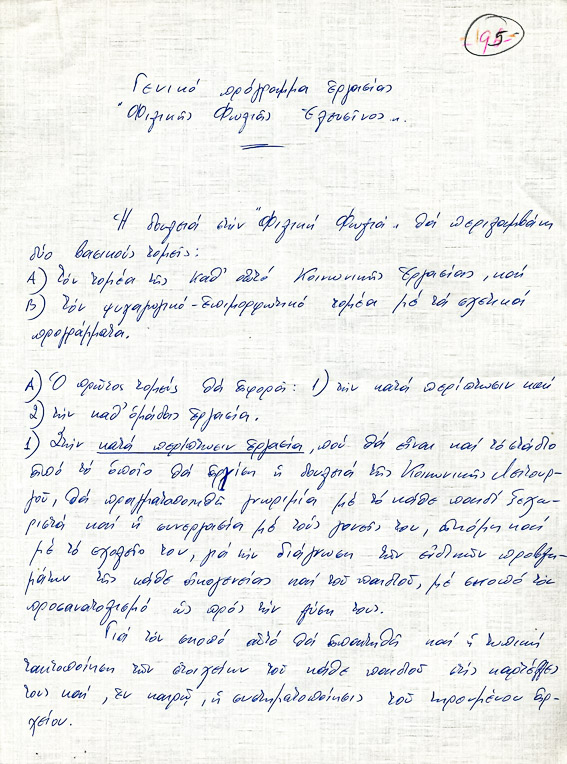 -195-
Γενικό πρόγραμμα ἐργασίας
"Φιλικῆς Φωλιᾶς Ἐλευσῖνος".
Ἡ δουλειά στήν "Φιλική Φωλιά" θά περιλαμβάνη
δύο βασικούς τομεῖς:
Α) τόν τομέα τῆς καθ' αὐτό Κοινωνικῆς Ἐργασίας, καί
Β) τόν ψυχαγωγικό-ἐπιμορφωτικό τομέα μέ τά σχετικά
προγράμματα.
Α) Ὁ πρῶτος τομεύς θά ἀφορᾶ: 1) τήν κατά περίπτωσιν καί
2) τήν καθ' ὁμάδας ἐργασία.
1) Στήν κατά περίπτωσιν ἐργασία, πού θά εἶναι καί τό στάδιο
ἀπό τό ὁποῖο θά ἀρχίση ἡ δουλειά τῆς Κοινωνικῆς Λειτουρ-
γοῦ, θά πραγματοποιηθῆ γνωριμία μέ τό κάθε παιδί ξεχω-
ριστά καί ἡ συνεργασία μέ τούς γονεῖς του, ἀκόμη καί
μέ τό σχολεῖο του, γιά τήν διάγνωση τῶν εἰδικῶν προβλη-
μάτων τῆς κάθε οἰκογενείας καί τοῦ παιδιοῦ, μέ σκοπό τόν
προσανατολισμό ὡς πρός τήν λύση τους.
Γιά τόν σκοπό αὐτό θά ἀπαιτηθῆ καί ἡ τυπική
ταυτοποίηση τῶν στοιχείων τοῦ κάθε παιδιοῦ στίς καρτέλλες
τους καί, ἐν καιρῷ, ἡ συστηματοποίησις τοῦ τηρουμένου ἀρ-
χείου.